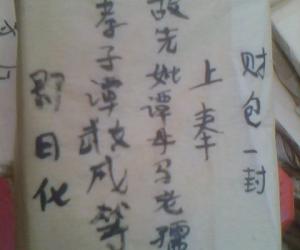 财包一封
上奉
故先妣谭母马老孺
孝子谭毅成等
即日化